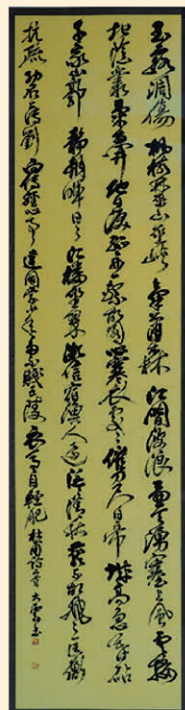 玉露凋傷楓樹林巫山巫峽氣蕭森江間波浪兼天湧塞上風雲接
地陰叢菊兩開他日淚孤舟一繫故園心寒衣處處催刀尺白帝城高急暮砧
千家山郭靜朝暉日日江樓坐翠微信宿漁人還泛泛清秋燕子故飛飛匡衡
抗疏功名薄劉向傳經心事違同學少年多不賤五陵衣馬自輕肥杜甫詩